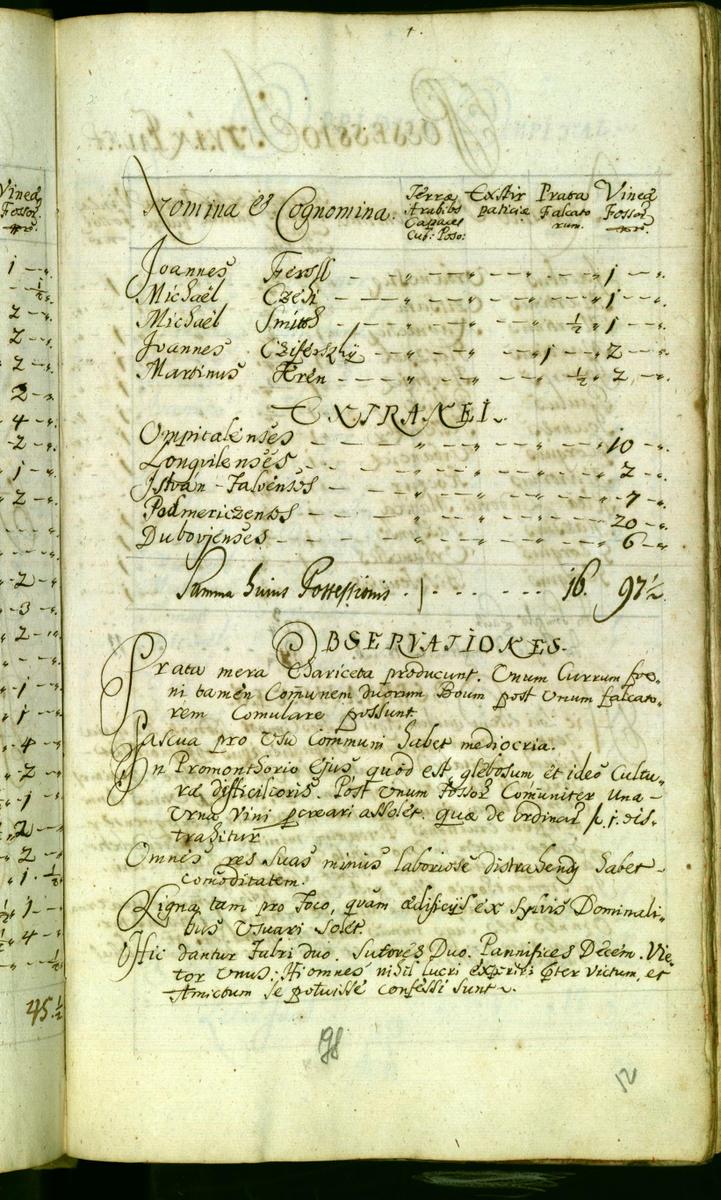 Vineæ
Fossor.
1 — „
— ½ „
2 — „
2 — „
2 — „
2 — „
4 — „
2 — „
1 — „
2 — „
2 — „
3 — „
2 — „
1 — „
1 — „
4 — „
2 — „
1 — „
2 — „
2 — „
1 · ½
1 — „
4 — „
45 ½
Nomina & Cognomina.
Terræ Arabiles Capaces Cub: Poso:
Exstirpaticiæ
Prata Falcatorum.
Vineæ Fossor.
Joannes — — „ — — „ — — „ 1 — „
Michaël Czeh — — — „ — — „ — — „ 1 — „
Michaël Smitth — — — „ — — „ — ½ „ 1 — „
Joannes — — „ — — „ — 1 — „ 2 — „
Martinus Krén — — — „ — — „ — ½ „ 2 — „
EXTRANEI.
Ompitalenses — — — „ — — „ — — „ 10 — „
Longvilenses — — — „ — — „ — — „ 2 — „
István-Falvenses — — — „ — — „ — — „ 7 — „
Podmericzenses — — — „ — — „ — — „ 20 — „
Dubovjenses — — — „ — — „ — — „ 6 — „
Summa huius Possessionis . . . . . . . . 16. 97½
OBSERVATIONES.
Prata mera Chariceta producunt. Unum Currum fœ-
ni tamen Comunem duorum Boum post Unum falcato-
rem Comulare possunt
Pascua pro Usu communi habet mediocria.
In Promonthorio ejus, quod est glebosum et ideo Cultu-
ræ difficilioris. Post Unum Fossor. Comuniter una
Urna Vini procreari assolet. quæ de ordinar. f. 1. dis-
trahitur
Omnes res suas minus laboriose distrahendi habet
comoditatem.
Ligna tam pro Foco, quam ædificijs ex Sylvis Dominali-
bus Usuari solet
Hic dantur Fabri duo. Sutores Duo. Pannifices Decem. Vie-
tor Unus. Hi omnes nihil lucri præter Victum, et
Amictum se potuisse confessi sunt.
98
52